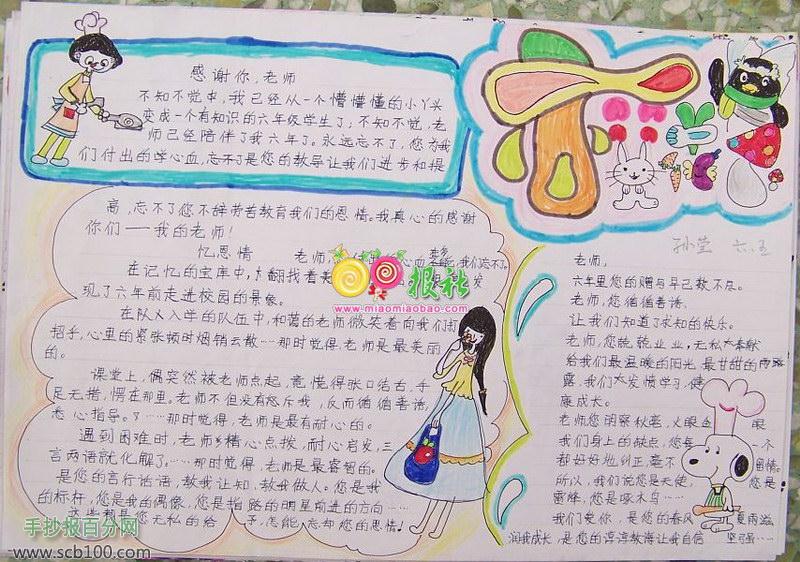 感谢你,老师
不知不觉中,我已经从一个懵懵懂的小丫头
变成一个有知识的六年级学生了,不知不觉,老
师已经陪伴了我六年了。永远忘不了,您为我
们付出的辛心血,忘不了是您的教导让我们进步和提
高,忘不了您不辞劳苦教育我们的恩情。我真心的感谢
你们——我的老师!
忆恩情
在记忆的宝库中,翻找着
现了六年前走进校园的景象。
在队入入学的队伍中,和蔼的老师微笑着向我们打
招手,心里的紧张顿时烟销云散…那时觉得老师是最美丽
的。
课堂上,偶突然被老师点起,竟慌得张口结舌,手
足无措,愣在那里。老师不但没有怒斥我,反而循循善诱,
悉心指导。……那时觉得,老师是最有耐心的。
遇到困难时,老师精心点拨,耐心启发,三
言两语就化解了。……那时觉得,老师是最睿智的。
是您的言行话语,教我认知,教我做人。您是我
的标杆,您是我的偶像,您是指路的明星前进的方向…
您无私的给予,怎能忘却您的恩情!
孙莹 六.五
老师,
六年里您的赠与早已数不尽。
老师,您循循善诱,
让我们知道了求知的快乐。
老师,您兢兢业业,无私奉献
给我们最温暖的阳光 最甘甜的雨露
露,我们发愤学习,健
康成长。
老师您明察秋毫,火眼金 眼
我们身上的缺点,您每 一个
都好好地纠正,毫不 留情。
所以,我们说您是天使, 您是
蜜蜂,您是啄木鸟……
我们爱你,是您的春风 夏雨滋
润我成长,是您的谆谆教诲让我自信
报社
www.miaomiaobao.com
手抄报百分网
www.scb100.com